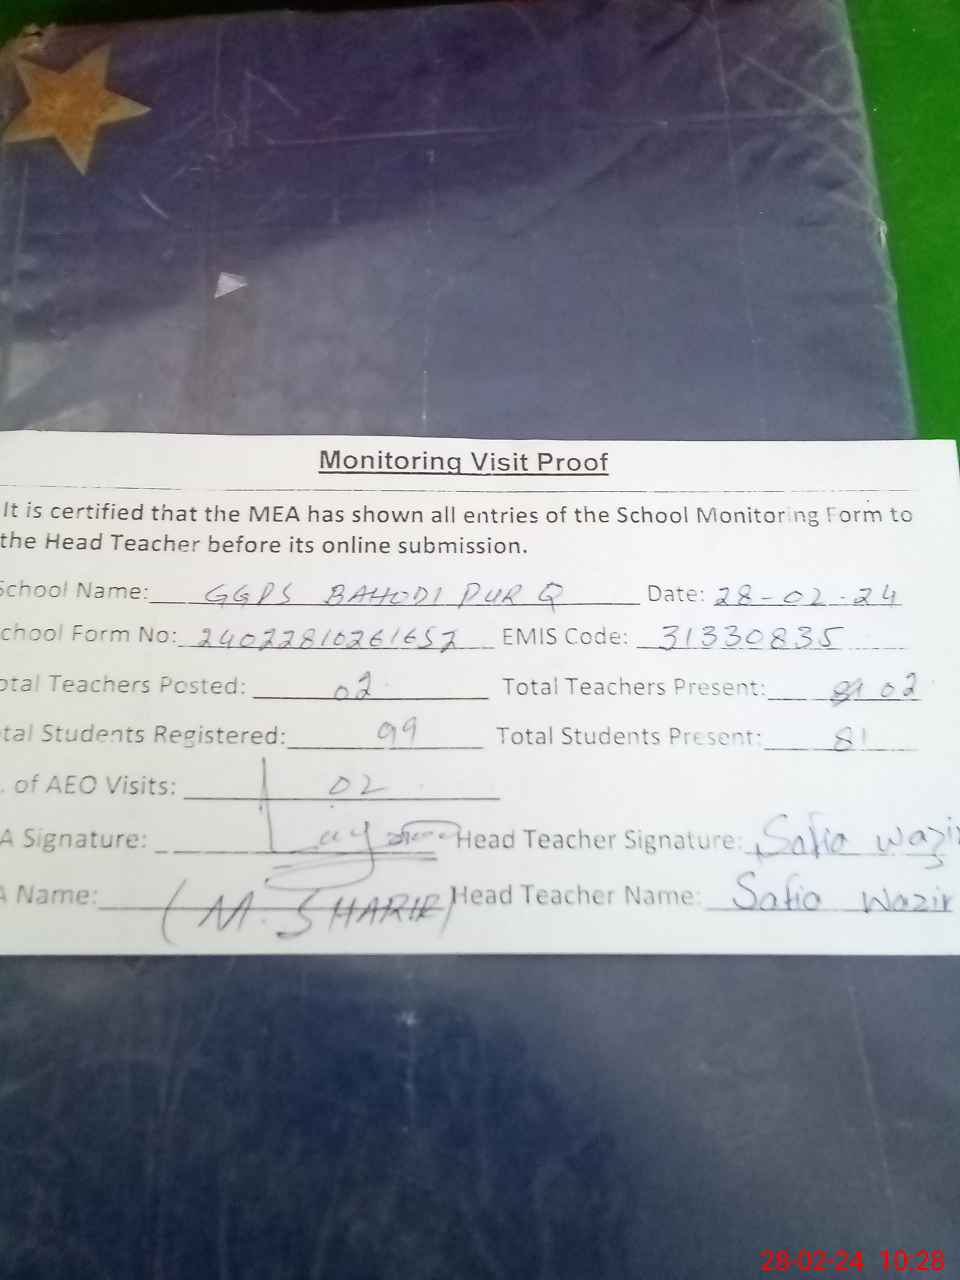 Monitoring Visit Proof
It is certified that the MEA has shown all entries of the School Monitoring Form to
the Head Teacher before its online submission.
School Name: GGPS BAHODI PUR Q Date: 28-02-24
chool Form No: 24022810261652 EMIS Code: 31330835
otal Teachers Posted: 02 Total Teachers Present: 02
tal Students Registered: 99 Total Students Present: 81
. of AEO Visits: 02
A Signature: Head Teacher Signature: Safia Wazir
A Name: (M. SHARIF) Head Teacher Name: Safia Wazir
28-02-24 10:28